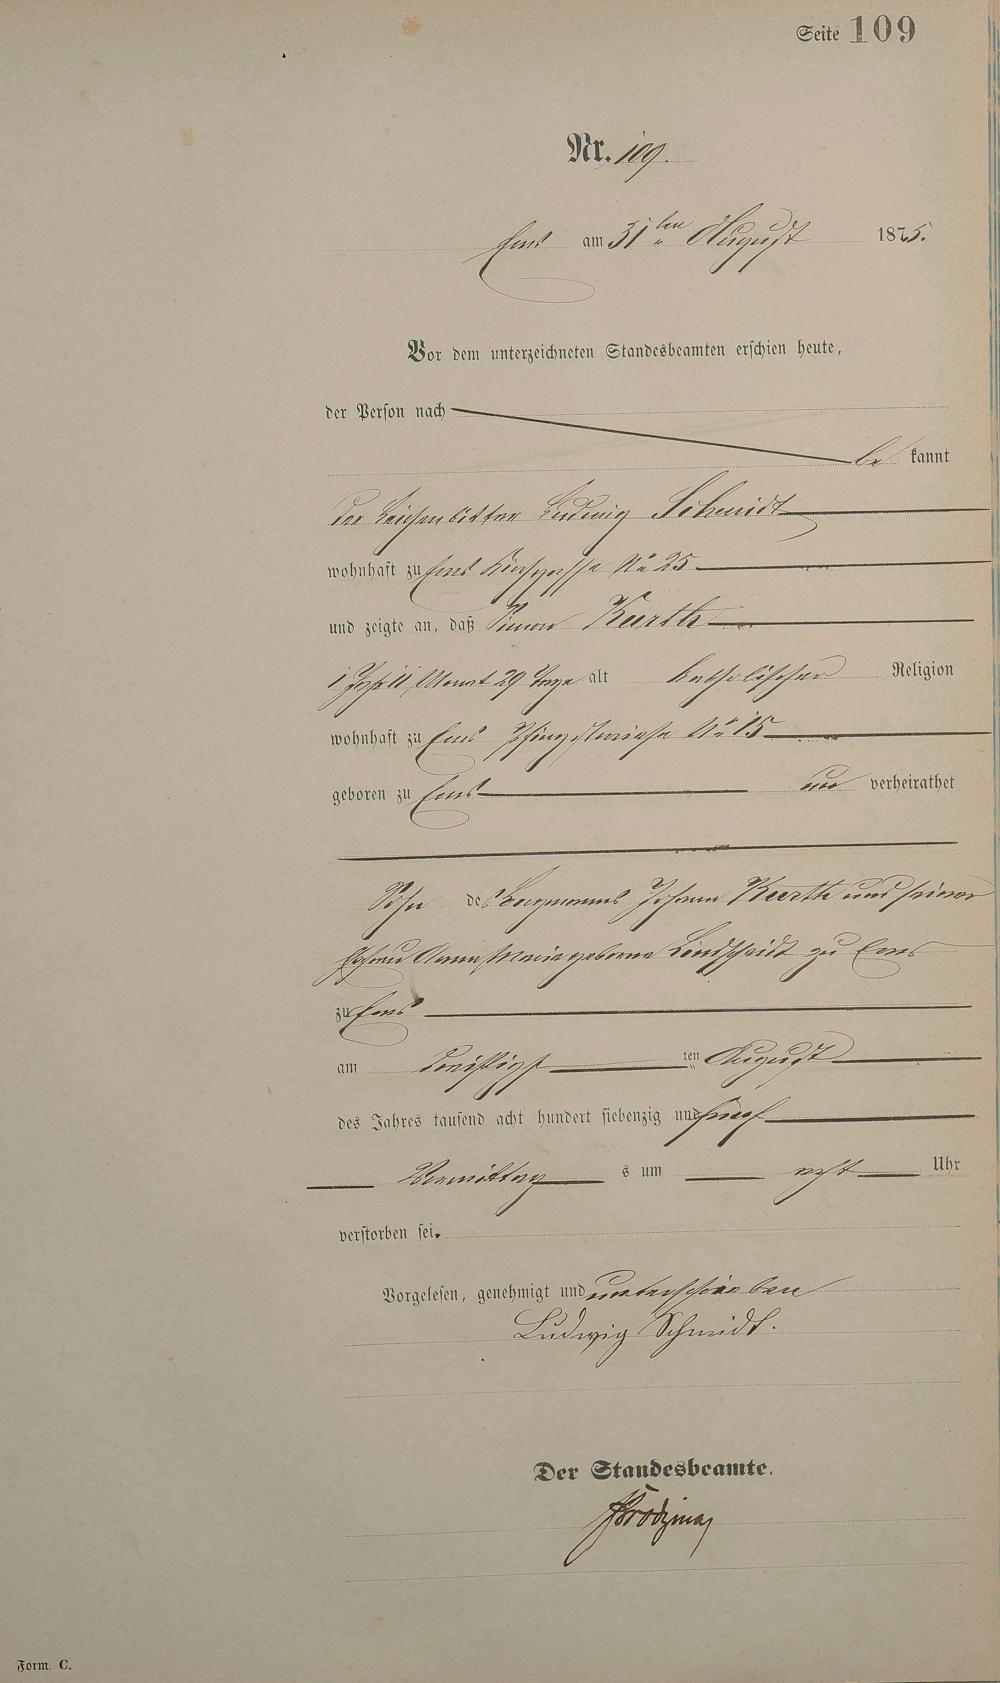 Seite 109
Nr. 109.
Ems am 31ten August 1875.
Vor dem unterzeichneten Standesbeamten erschien heute,
der Person nach
be kannt
der Leichenbitter Ludwig Schmidt
wohnhaft zu Ems Kirchgasse No 25
und zeigte an, daß Simon Kurth
1 Jahr 11 Monat 29 Tage alt katholischer Religion
wohnhaft zu Ems Pfingstwiese No 15
geboren zu Ems un verheirathet
Sohn des Bergmanns Johann Kurth und seiner
Ehefrau Anna Maria geborne Lindscheidt zu Ems
zu Ems
am dreißigst ten August
des Jahres tausend acht hundert siebenzig und fünf
Vormittag s um acht Uhr
verstorben sei.
Vorgelesen, genehmigt und unterschrieben
Ludwig Schmidt.
Der Standesbeamte.
Form. C.